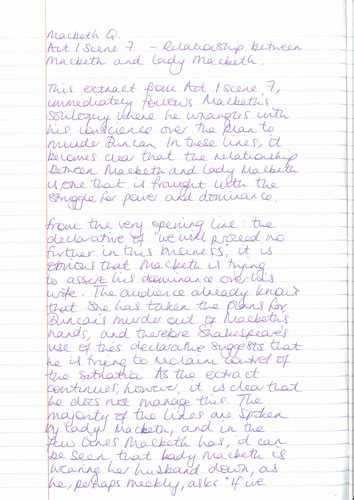 Macbeth Q.
Act 1 Scene 7 - Relationship between
Macbeth and Lady Macbeth.
This extract from Act 1 scene 7,
immediately follows Macbeth's
soliloquy where he wrangles with
his conscience over the plan to
murder Duncan. In these lines, it
becomes clear that the relationship
between Macbeth and Lady Macbeth
is one that is fraught with the
struggle for power and dominance.
From the very opening line: the
declarative of "we will proceed no
further in this business", it is
obvious that Macbeth is trying
to assert his dominance over his
wife. The audience already knows
that she has taken the plans for
Duncan's murder out of Macbeth's
hands, and therefore Shakespeare's
use of this declarative suggests that
he is trying to reclaim control of
the situation. As the extract
continues, however, it is clear that
he does not manage this. The
majority of the lines are spoken
by Lady Macbeth, and in the
few lines Macbeth has, it can
be seen that Lady Macbeth is
wearing her husband down, as
he, perhaps meekly, asks "If we